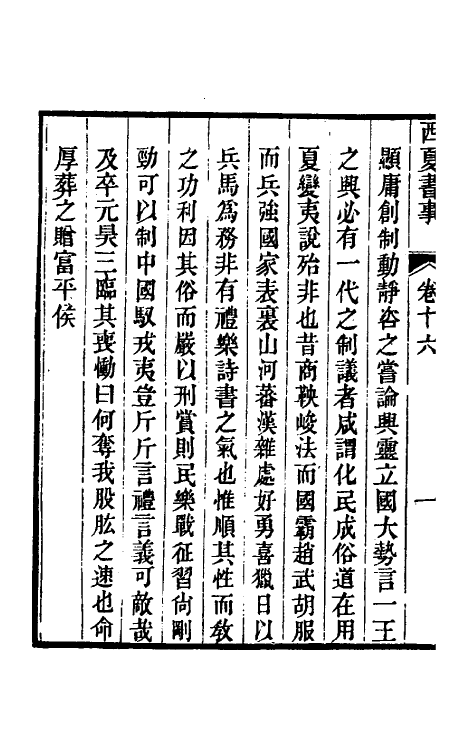 西夏書事
卷十六
一
顯庸創制動靜咨之嘗論興靈立國大勢言一王
之興必有一代之制議者咸謂化民成俗道在用
夏變夷說殆非也昔商鞅峻法而國霸趙武胡服
而兵強國家表裏山河蕃漢雜處好勇喜獵日以
兵馬爲務非有禮樂詩書之氣也惟順其性而敎
之功利因其俗而嚴以刑賞則民樂戰征習尙剛
勁可以制中國馭戎夷豈斤斤言禮言義可敵哉
及卒元昊三臨其喪慟曰何奪我股肱之速也命
厚葬之贈富平侯